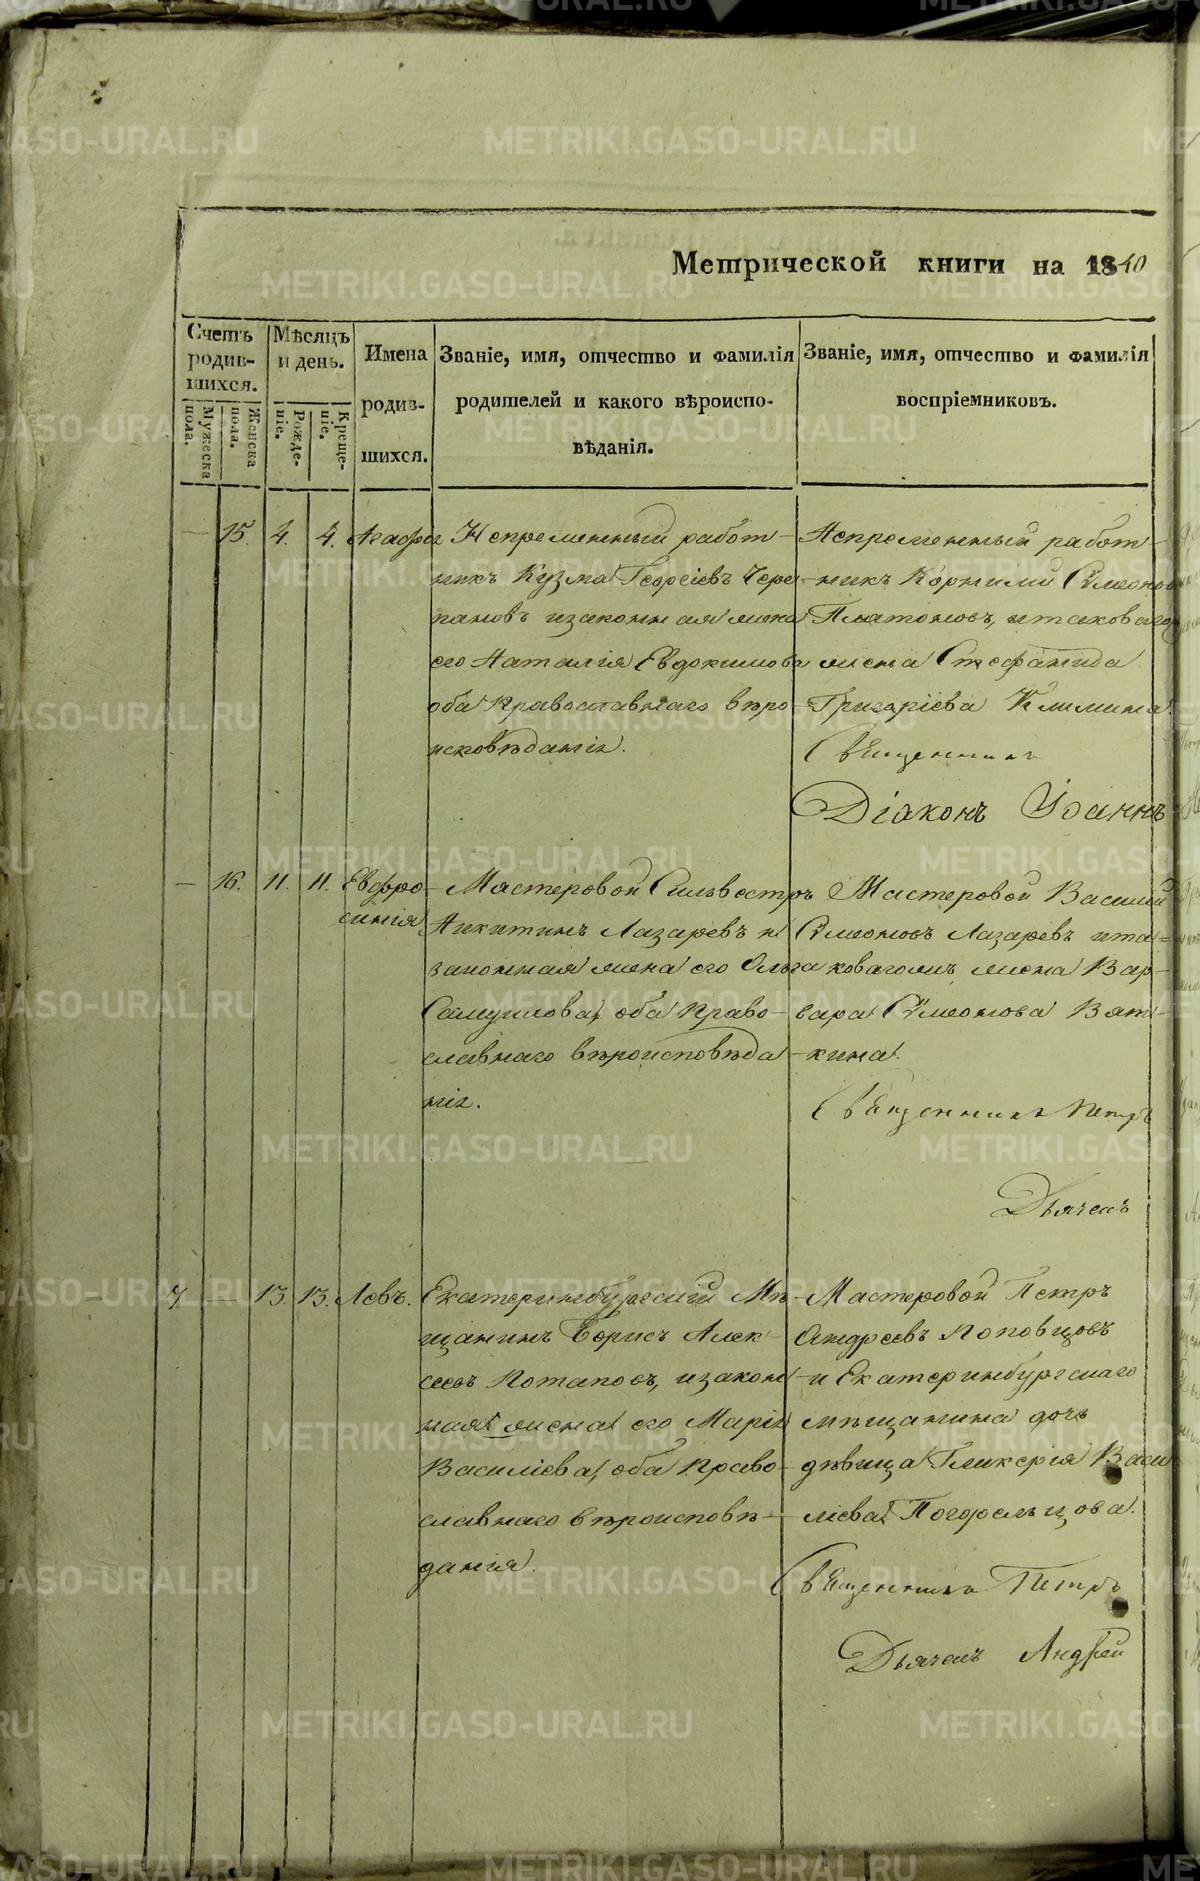 Метрической книги на 1840
Счетъ родив-шихся.
Мужеска пола.
Женска пола.
Мѣсяцъ и день.
Рожде-ніе.
Креще-ніе.
Имена родив-шихся.
Званіе, имя, отчество и фамилія
родителей и какого вѣроиспо-
вѣданія.
Званіе, имя, отчество и фамилія
воспріемниковъ.
— 15. 4. 4. Агафія
Непременный работ-
никъ Кузма Георгіевъ Чере-
пановъ изаконная жена
его Наталія Евдокимова
оба Православнаго вѣро-
исповѣданія.
Непременный работ-
никъ Корнилий Симеоновъ
Платоновъ, итаковаго
жена Стефанида
Григоріева Климина.
Священникъ
Діаконъ Іоаннъ
— 16. 11. 11. Евфро-
синія
Мастеровой Сильвестръ
Никитинъ Лазаревъ и
законная жена его Ольга
Самуилова, оба Право-
славнаго вѣроисповѣда-
нія.
Мастеровой Василий
Симеоновъ Лазаревъ ита-
коваго жена Вар-
вара Симеонова Вят-
кина.
Священникъ Петръ
Дьячекъ
7 — 13. 13. Левъ.
Екатеринбургский Мѣ-
щанинъ Борисъ Алек-
сеевъ Потаповъ, изакон-
ная жена его Марія
Василіева, оба Право-
славнаго вѣроисповѣ-
данія.
Мастеровой Петръ
Андреевъ Поповцовъ
и Екатеринбургскаго
мѣщанина дочь
дѣвица Гликерія Васи-
ліева Погорельцова.
Священникъ Петръ
Дьячекъ Андрей
METRIKI.GASO-URAL.RU